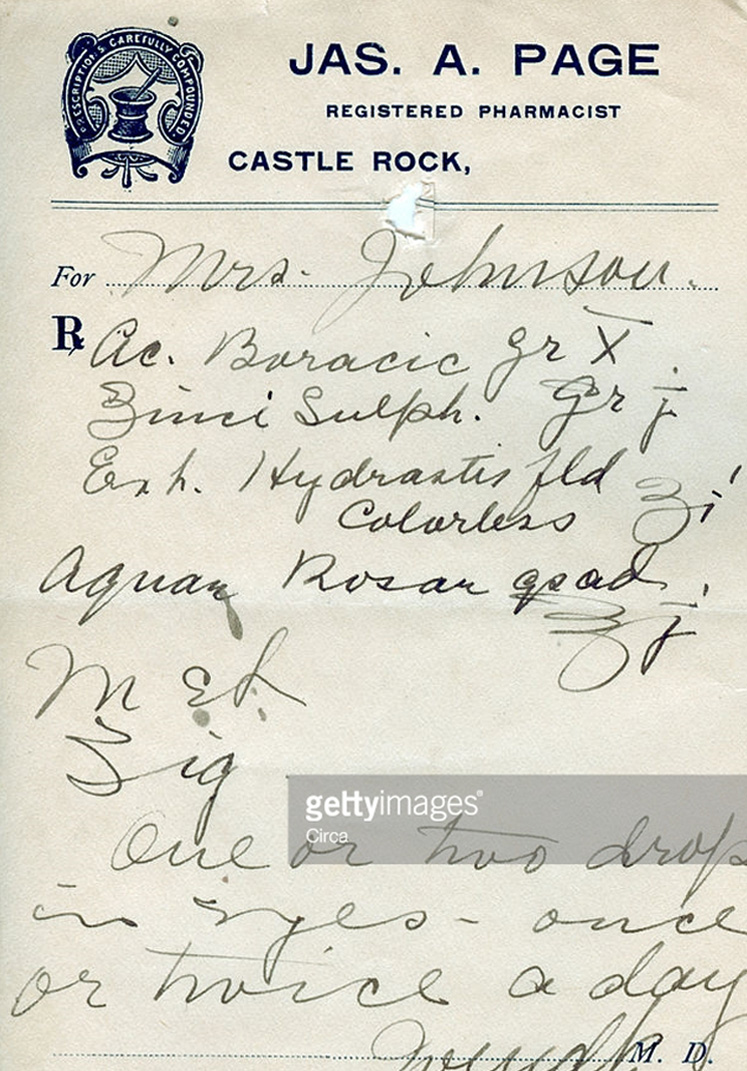 PRESCRIPTIONS CAREFULLY COMPOUNDED.
JAS. A. PAGE
REGISTERED PHARMACIST
CASTLE ROCK,
For Mrs. Johnson.
℞ Ac. Boracic gr X
Zinci Sulph. Gr j
Ext. Hydrastis fld
Colorless ʒi
Aquae Rosae qs ad
℥j
M
Sig
gettyimages®
Circa
One or two drops
in eyes - once
or twice a day
M. D.